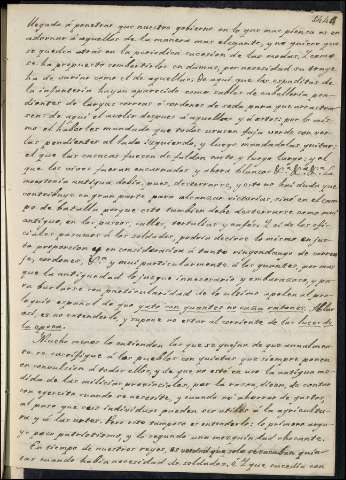 llegado á penetrar que nuestro gobierno en lo que mas piensa es en
adornar á aquellos de la manera mas elegante, y no quiere que
se queden atrás en la periodica sucesion de las modas. Como
se ha propuesto combertirlos en damas, por necesidad su trage
ha de variar como el de aquellas. De aqui que las espaditas de
la infanteria hayan aparecido como sables de caballeria pen-
dientes de largas correas ó cordones de seda para que arrastra-
sen: de aqui el
mo el haberles mandado que todos usasen faja verde con ver-
las pendientes al lado izquierdo, y luego mandadolas quitar:
el que las casacas fuesen de faldon corto, y luego largo; y el
que los vivos fueran encarnados y ahora blancos &ª &ª &ª
antigua debio, pues, desterrarse, y esto no hai duda que
contribuye en gran parte para alcanzar victorias, sino en el cam-
po de batalla porque esto tambien debe desterrarse como mui
antiguo, en los paseos, cafés, tertulias y
ciales pasamos á los soldados, podria decirse lo mismo en jus-
ta proporcion en consideracion á tanto
cordones, &ª y mui particularmente á los guantes, por mas
que la antiguedad lo juzgue innecesario y embarazoso, y pa-
ra burlarse con particularidad de lo ultimo apelen al pro-
loquio español de que gato con guantes no caza ratones. Hablar
asi, es no entenderlo, y supone no estar al corriente de las luces de
la epoca.
Mucho menos lo entienden los que se quejan de que anualmen-
te se sacrifique á los pueblos con quintas que siempre ponen
en convulsion á todos ellos, y de que no esté en uso la antigua me-
dida de las milicias provinciales, por la razon, dicen, de contar
con egercito cuando se necesite, y cuando no ahorrar de gastos,
al paso que sus individuos pueden ser utiles á la agricultu-
ra y á las artes. Pero esto tampoco es entenderlo: lo primero argu-
ye poco patriotismo, y lo segundo una mezquindad chocante.
En tiempo de nuestros reyes, es verdad que solo se sacaban quin-
tas cuando habia necesidad de soldados,